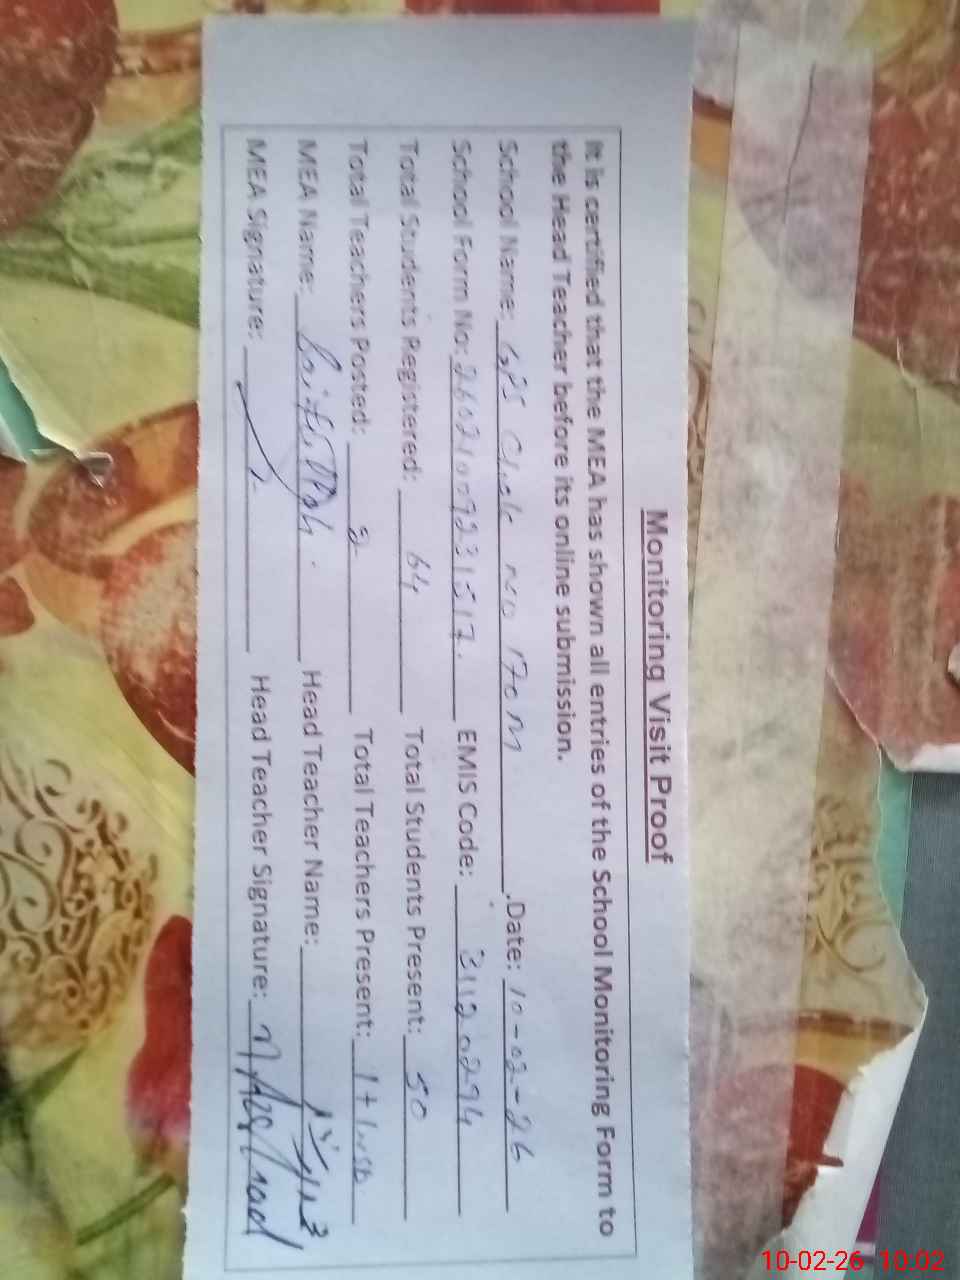 Monitoring Visit Proof
It is certified that the MEA has shown all entries of the School Monitoring Form to
the Head Teacher before its online submission.
School Name: GPS Chak no 170 M .Date: 10-02-26
School Form No: EMIS Code: 31120294
Total Students Registered: 64 Total Students Present: 50
Total Teachers Posted: 2 Total Teachers Present: 1+
MEA Name: Head Teacher Name:
MEA Signature: Head Teacher Signature:
10-02-26 10:02